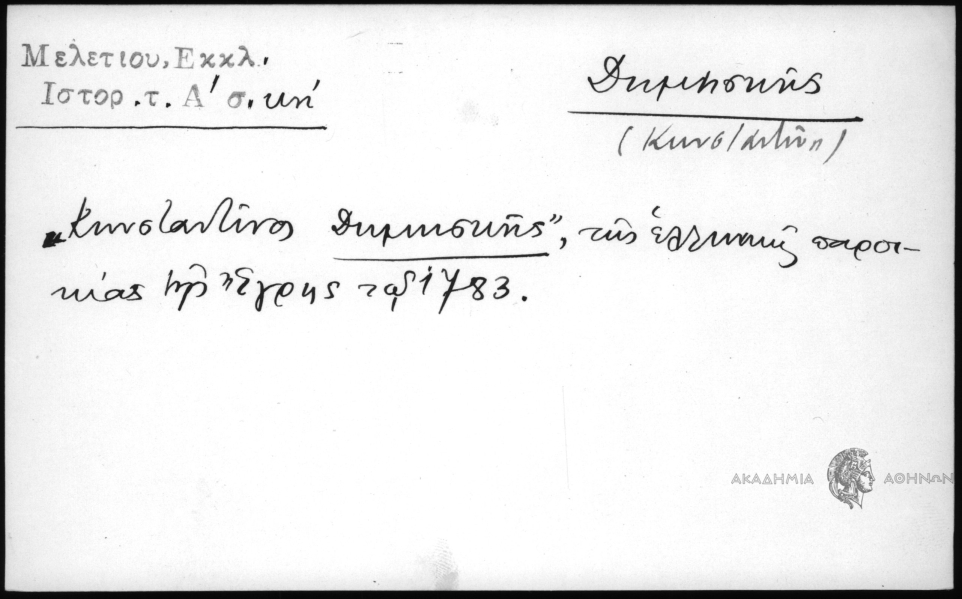 Μελετιου, Εκκλ.
Ιστορ. τ. Α' σ. κή
Δημησκῆς
(Κωνσταντῖν)
„Κωνσταντῖνος Δημησκῆς", τῆς ἑλληνικῆς παροι-
κίας τῆς Ἔγρης τῷ 1783.
ΑΚΑΔΗΜΙΑ ΑΘΗΝΩΝ